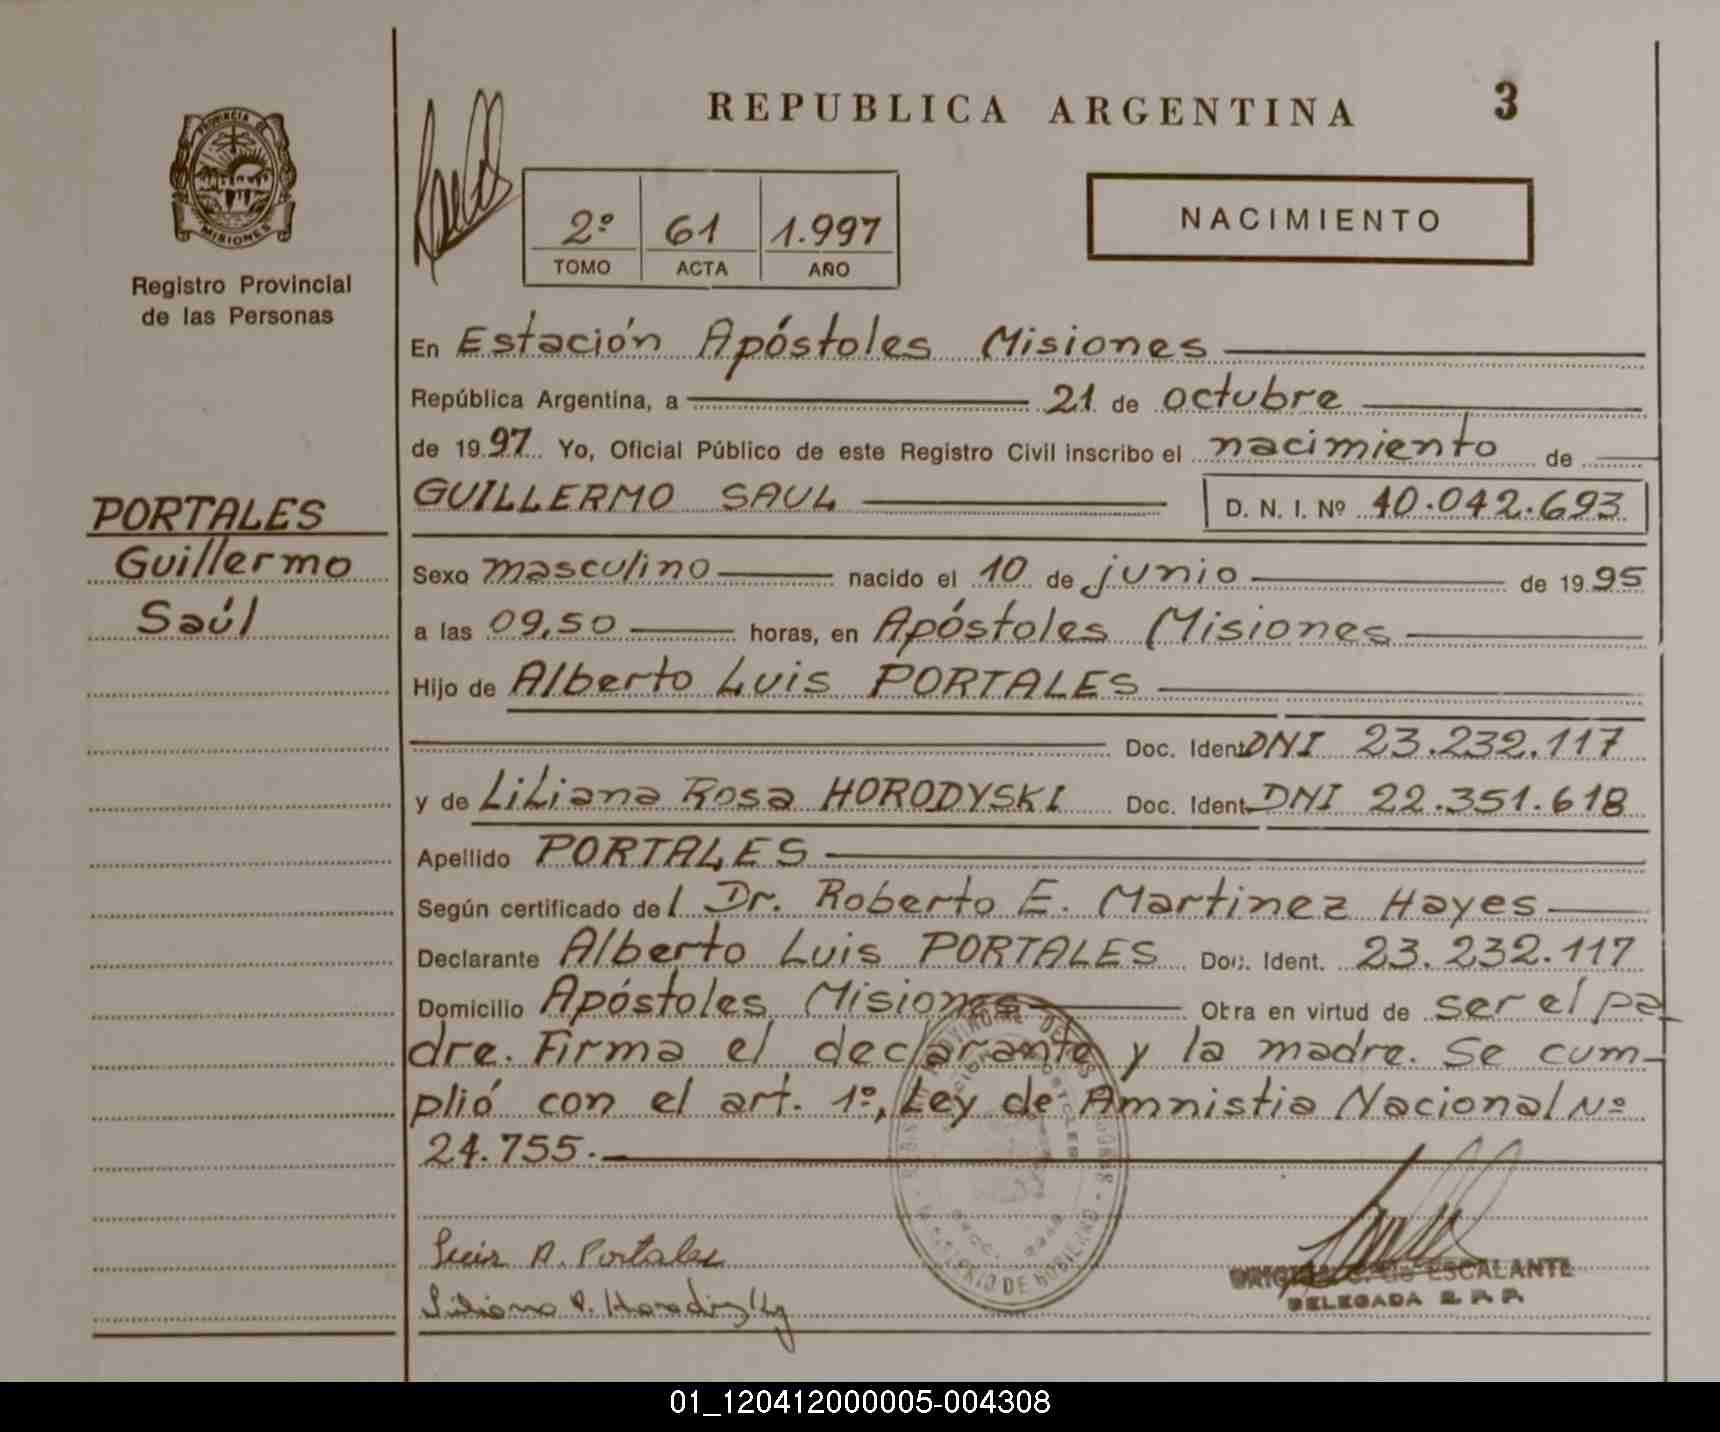 REPUBLICA ARGENTINA 3
PROVINCIA DE
MISIONES
Registro Provincial
de las Personas
2º 61 1.997
TOMO ACTA AÑO
NACIMIENTO
En Estación Apóstoles Misiones
República Argentina, a 21 de octubre
de 1997 Yo, Oficial Público de este Registro Civil inscribo el nacimiento de
PORTALES
Guillermo
Saúl
GUILLERMO SAUL D. N. I. Nº 40.042.693
Sexo masculino nacido el 10 de junio de 1995
a las 09,50 horas, en Apóstoles Misiones
Hijo de Alberto Luis PORTALES
Doc. Ident. DNI 23.232.117
y de Liliana Rosa HORODYSKI Doc. Ident. DNI 22.351.618
Apellido PORTALES
Según certificado del Dr. Roberto E. Martinez Hayes
Declarante Alberto Luis PORTALES Doc. Ident. 23.232.117
Domicilio Apóstoles Misiones Obra en virtud de ser el pa
dre. Firma el declarante y la madre. Se cum-
plió con el art. 1º, Ley de Amnistia Nacional Nº
24.755.-
Luis A. Portales
Liliana R. Horodyski
de ESCALANTE
DELEGADA R. P. P.
01_120412000005-004308